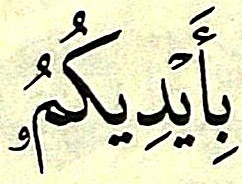 بِأَيْدِيكُمُۥ